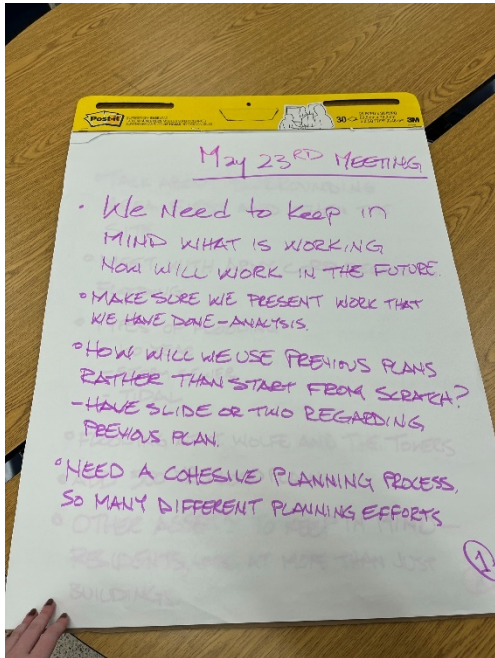 Post-it
30
3M
May 23RD MEETING
• We Need to Keep in
MIND WHAT IS WORKING
NOW WILL WORK IN THE FUTURE.
• MAKE SURE WE PRESENT WORK THAT
WE HAVE DONE - ANALYSIS.
• HOW WILL WE USE PREVIOUS PLANS
RATHER THAN START FROM SCRATCH?
- HAVE SLIDE OR TWO REGARDING
PREVIOUS PLAN.
• NEED A COHESIVE PLANNING PROCESS.
SO MANY DIFFERENT PLANNING EFFORTS
• OTHER
RESIDENTS, AT MORE THAN JUST
BUILDINGS.
1